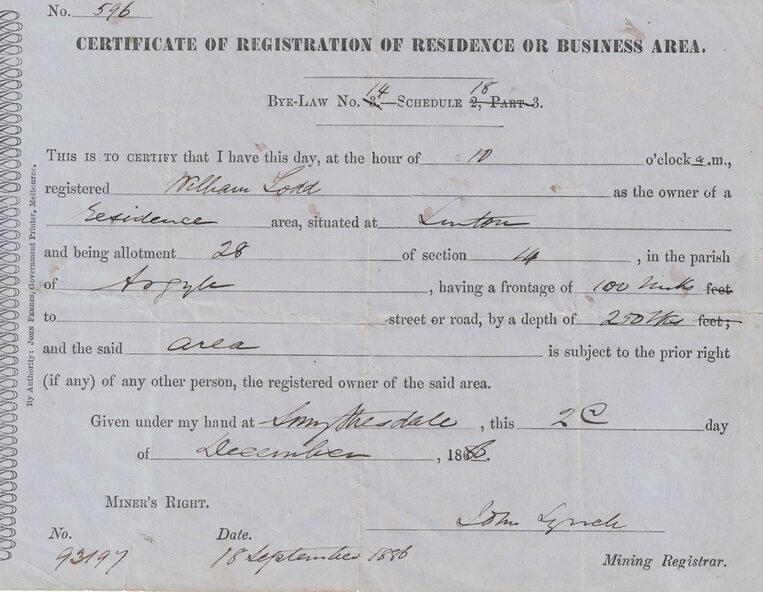 No. 596
CERTIFICATE OF REGISTRATION OF RESIDENCE OR BUSINESS AREA.
14 18
BYE-LAW NO. 3.—SCHEDULE 2, PART 3.
THIS IS TO CERTIFY that I have this day, at the hour of 10 o'clock a.m.,
registered William Todd as the owner of a
Residence area, situated at Linton
and being allotment 28 of section 14, in the parish
of Argyle, having a frontage of 100 links feet
to street or road, by a depth of 250 lks feet;
and the said area is subject to the prior right
(if any) of any other person, the registered owner of the said area.
Given under my hand at Smythesdale, this day
of December, 1886.
MINER'S RIGHT.
John Lynch
No. Date.
93197 18 September 1886
Mining Registrar.
By Authority: JOHN FERRES, Government Printer, Melbourne.